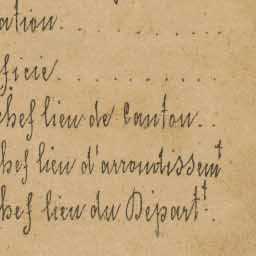 ation . . . . . . . .
ficie . . . . . . . . .
chef lieu de Canton . .
chef lieu d'arrondissemt
chef lieu du Départt .